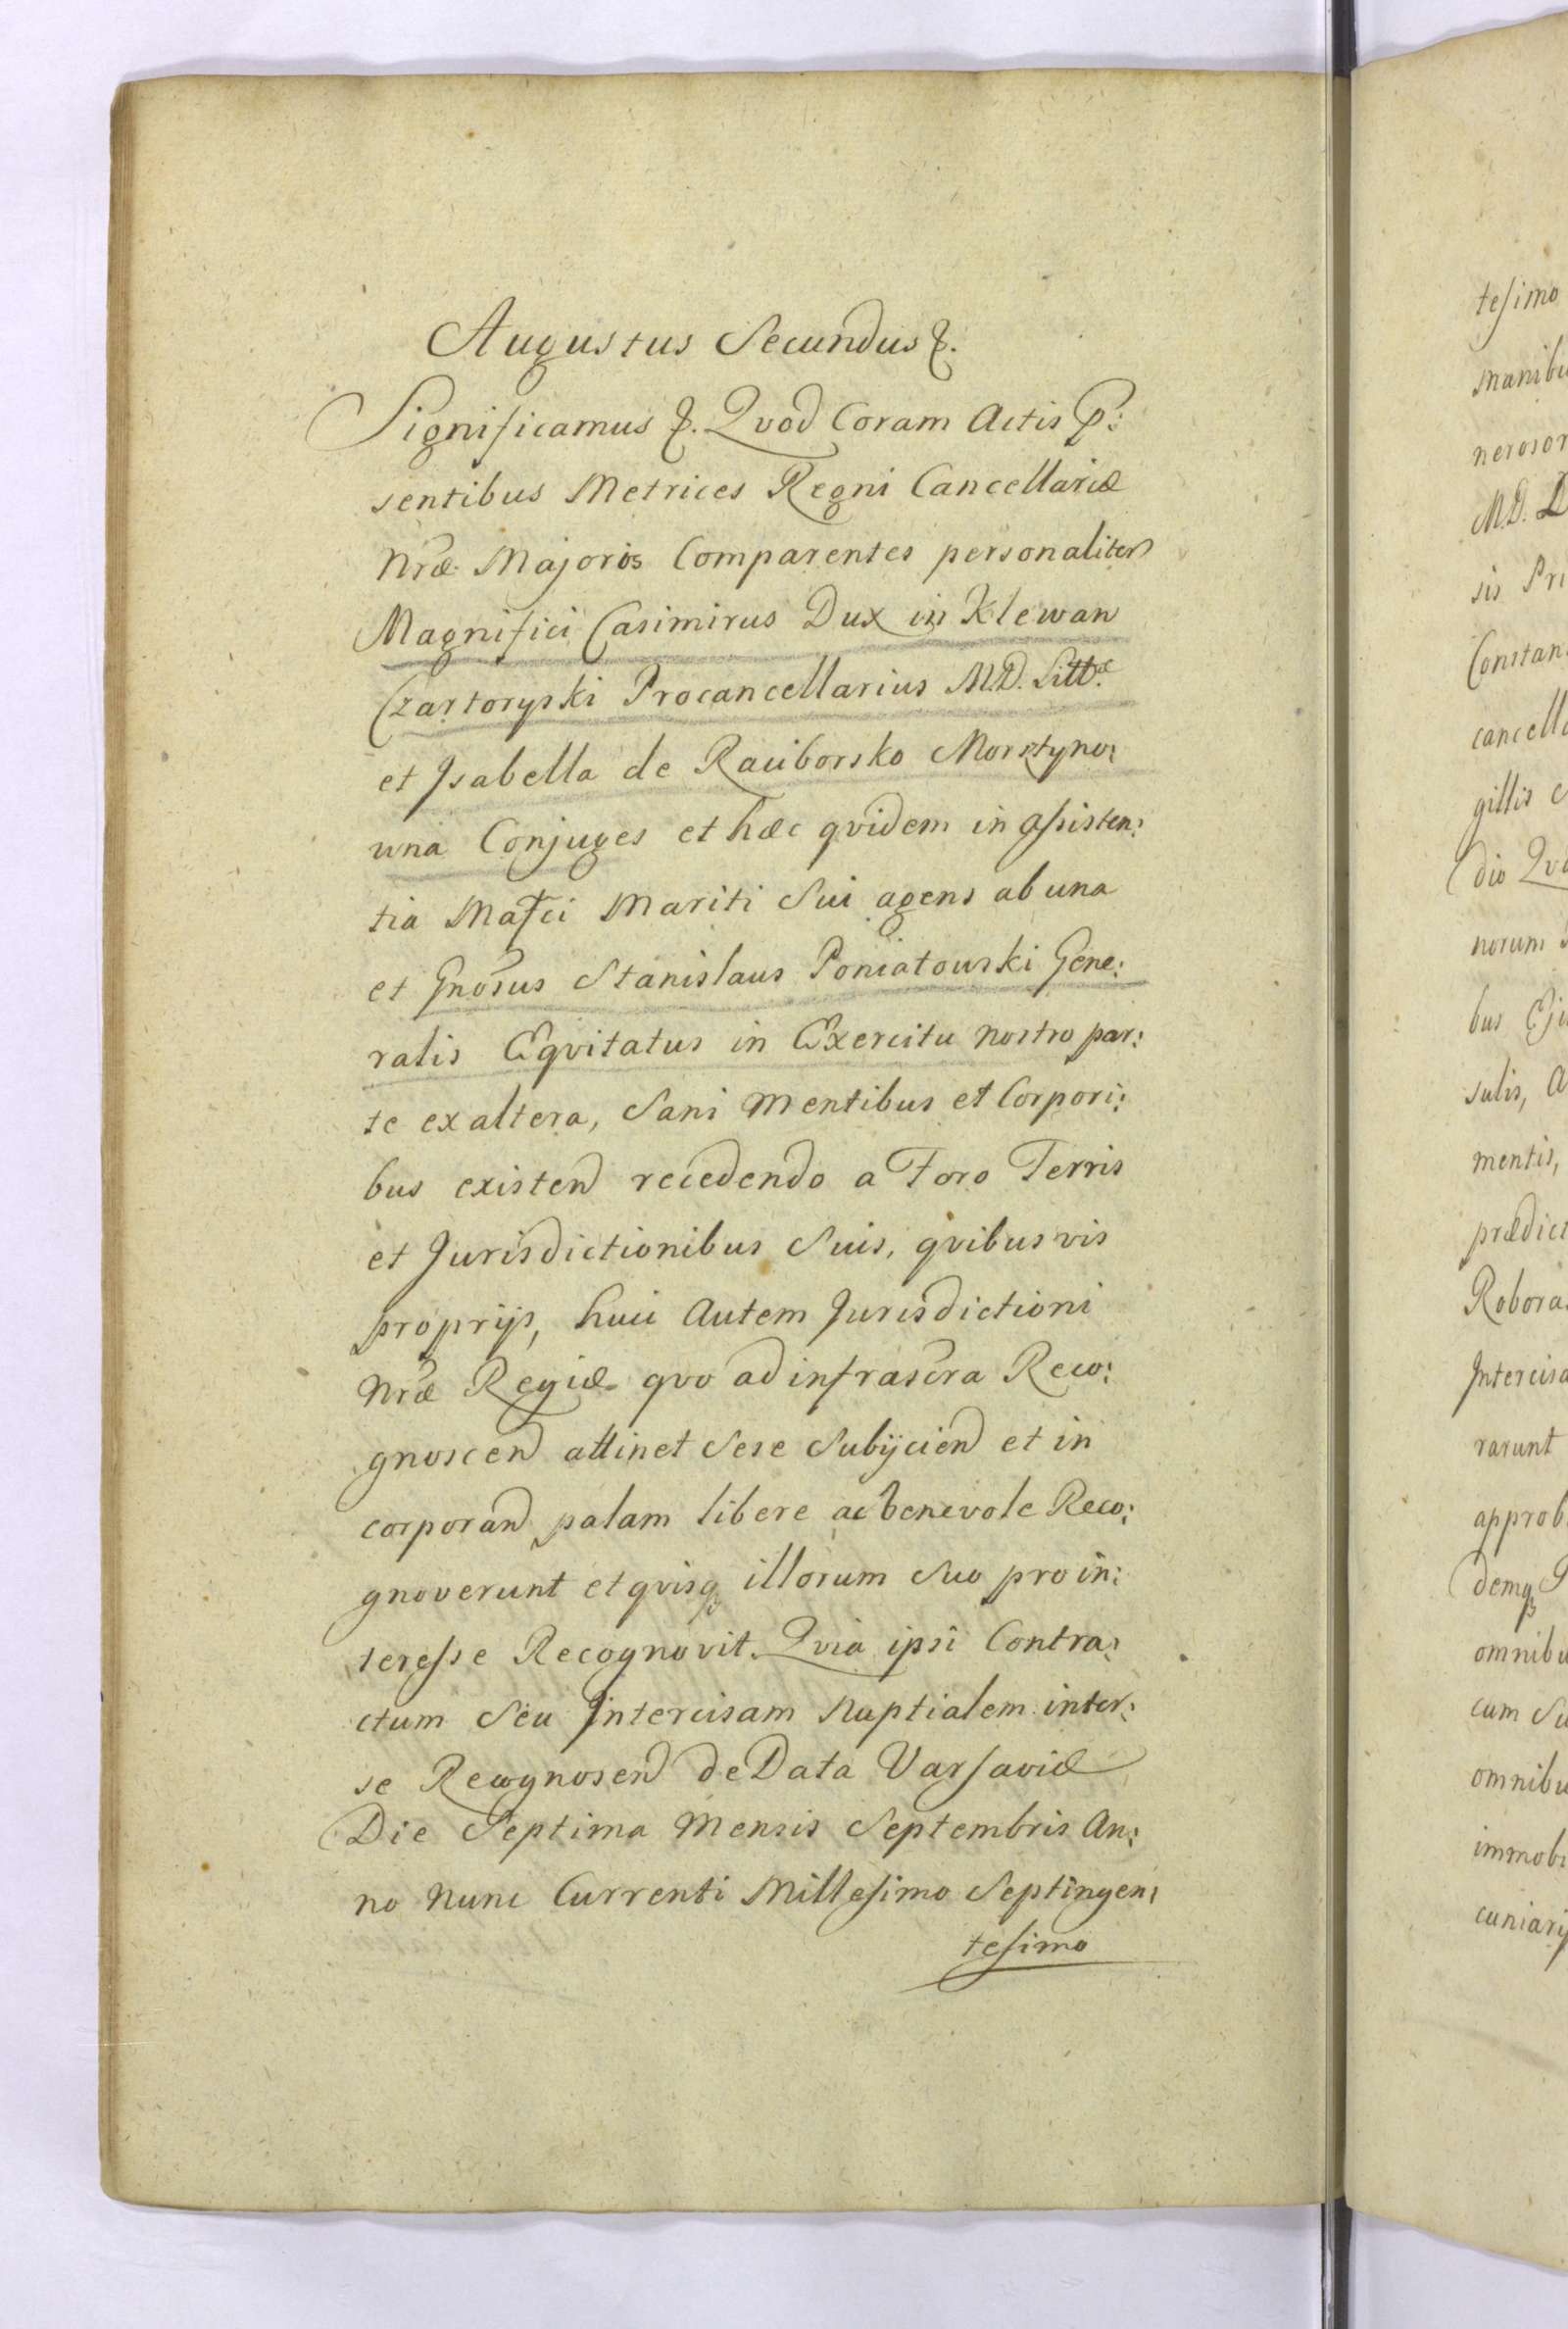 Augustus Secundus &.
Significamus &. Qvod Coram Actis p:
sentibus Metrices Regni Cancellariæ
Nræ Majoris Comparentes personaliter
Magnifici Casimirus Dux in Klewan
Czartoryski Procancellarius M.D. Littæ
et Isabella de Raciborsko Morsztyno:
una Conjuges et hæc qvidem in assisten:
tia Mafci Mariti Sui agens ab una
et Gnosus Stanislaus Poniatowski Gene:
ralis Eqvitatus in Exercitu nostro par:
te ex altera, Sani mentibus et Corpori:
bus existen recedendo a Foro Terris
et Jurisdictionibus Suis, qvibusvis
proprijs, huic Autem Jurisdictioni
Nræ Regiæ qvo ad infrascra Reco:
gnoscen attinet Sese Subijcien et in
corporan palam libere ac benevole Reco:
gnoverunt et qvisq illorum Suo pro in:
teresse Recognovit. Qvia ipsi Contra:
ctum Seu Intercisam Nuptialem inter:
se Recognosen de Data Varsaviæ
Die Septima Mensis Septembris An:
no nunc Currenti Millesimo Septingen:
tesimo
tesimo
manibu
nerosor
M.D. L
sis Pri
Constan
cancella
gillis
dio Qvo
norum
bus Eju
sulis, a
mentis,
prædict
Robora
Intercisa
rarunt
approb
demq
omnibu
cum Su
omnibu
immobi
cuniarij